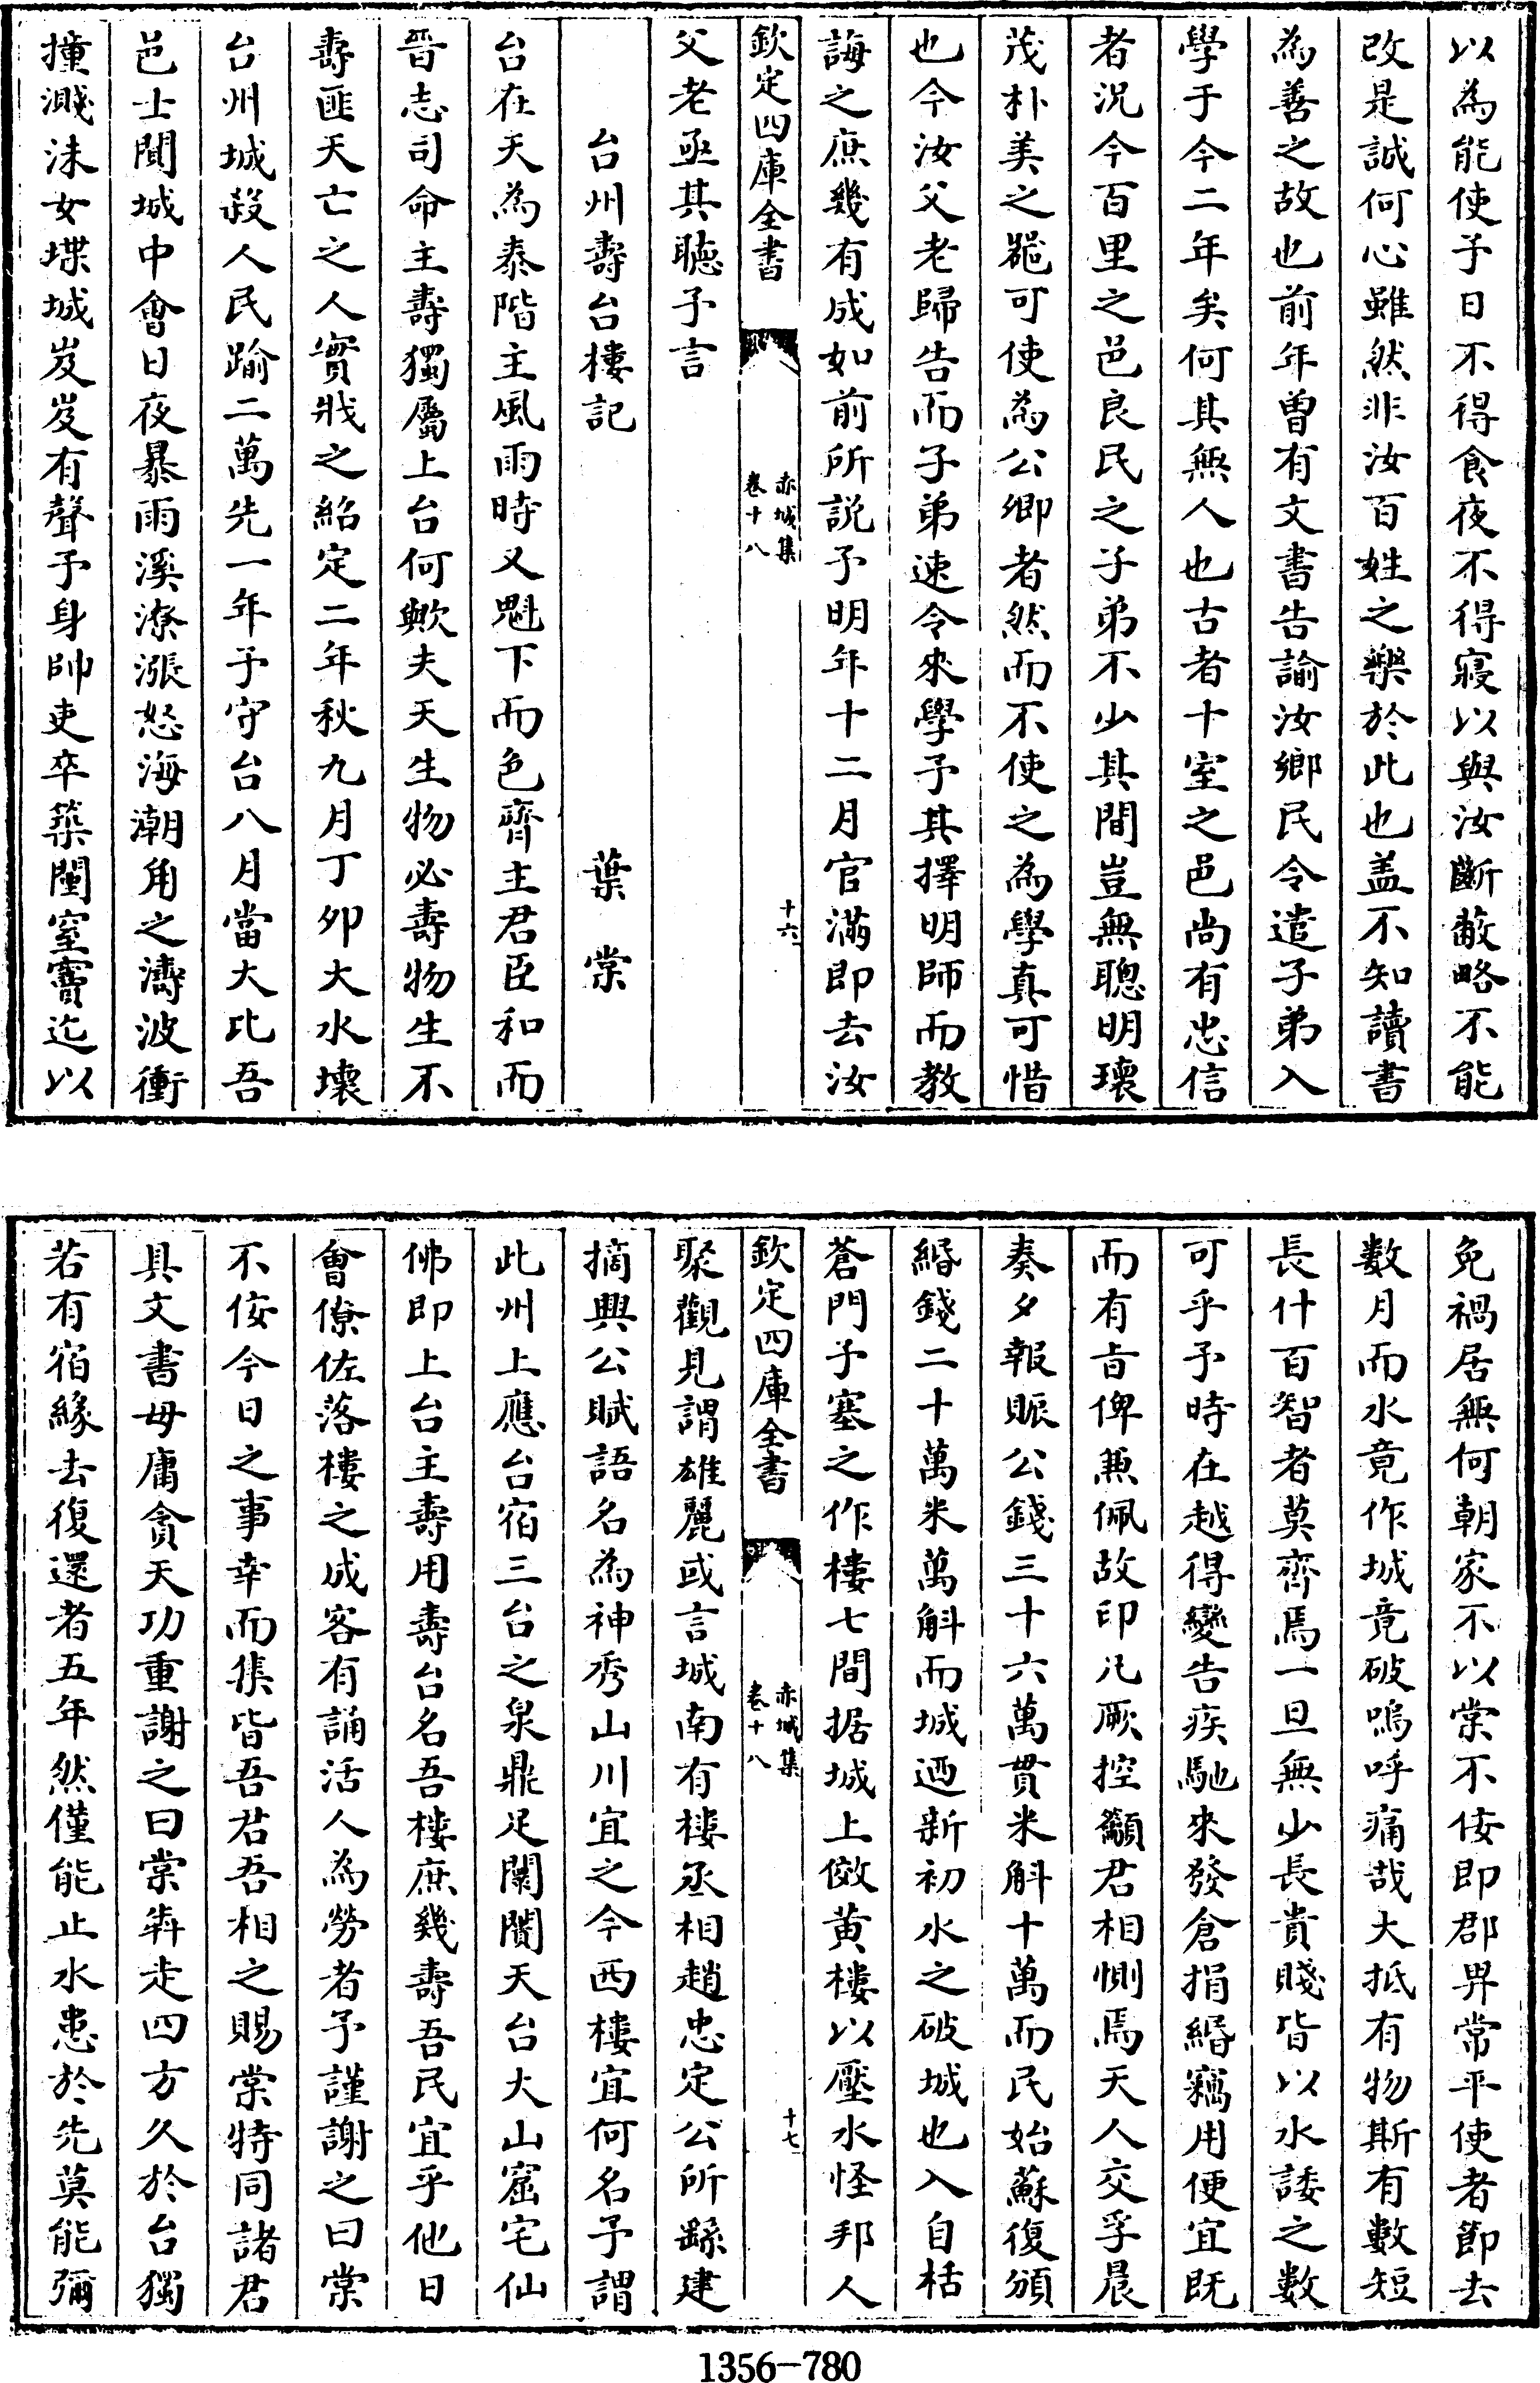 以為能使予日不得食夜不得寢以與汝斷敝略不能
改是誠何心雖然非汝百姓之樂於此也盖不知讀書
為善之故也前年曽有文書告諭汝鄉民令遣子弟入
學于今二年矣何其無人也古者十室之邑尚有忠信
者況今百里之邑良民之子弟不少其間豈無聰明瓌
茂朴美之器可使為公卿者然而不使之為學真可惜
也今汝父老歸告而子弟速令來學予其擇明師而教
誨之庶幾有成如前所説予明年十二月官滿即去汝
欽定四庫全書
赤城集
卷十八
十六
父老亟其聽予言
台州壽台樓記
葉棠
台在天為泰階主風雨時又魁下而色齊主君臣和而
晉志司命主壽獨屬上台何歟夫天生物必壽物生不
壽匪天亡之人實戕之紹定二年秋九月丁夘大水壞
台州城殺人民踰二萬先一年予守台八月當大比吾
邑士聞城中會日夜暴雨溪潦漲怒海潮角之濤波衝
撞濺沫女堞城岌岌有聲予身帥吏卒築闉窒竇迄以
免禍居無何朝家不以棠不佞即郡畀常平使者節去
數月而水竟作城竟破嗚呼痛哉大抵有物斯有數短
長什百智者莫齊焉一旦無少長貴賤皆以水諉之數
可乎予時在越得變告疾馳來發倉捐緡竊用便宜既
而有旨俾兼佩故印凡厥控籲君相惻焉天人交孚晨
奏夕報賑公錢三十六萬貫米斛十萬而民始蘇復頒
緡錢二十萬米萬斛而城迺新初水之破城也入自栝
蒼門予塞之作樓七間据城上倣黄樓以壓水怪邦人
欽定四庫全書
赤城集
卷十八
十七
聚觀見謂雄麗或言城南有樓丞相趙忠定公所繇建
摘興公賦語名為神秀山川宜之今西樓宜何名予謂
此州上應台宿三台之泉鼎足闤闠天台大山窟宅仙
佛即上台主壽用壽台名吾樓庶幾壽吾民宜乎他日
會僚佐落樓之成客有誦活人為勞者予謹謝之曰棠
不佞今日之事幸而集皆吾君吾相之賜棠特同諸君
具文書毋庸貪天功重謝之曰棠犇走四方久於台獨
若有宿緣去復還者五年然僅能止水患於先莫能彌
1356-780